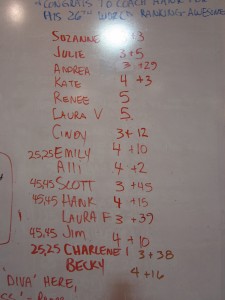 CONGRATS TO COACH HANK FOR
HIS 26TH WORLD RANKING-AWESOME
SUZANNE 3
JULIE 3+5
ANDREA 3+29
KATE 4+3
RENEE 5
LAURA V 5
CINDY 3+12
25,25 EMILY 4+10
Alli 4+2
45,45 SCOTT 3+45
45,45 HANK 4+15
LAURA F 3+39
45,45 Jim 4+10
25,25 CHARLENE 3+38
BECKY 4+16
'DIVA' HERE,